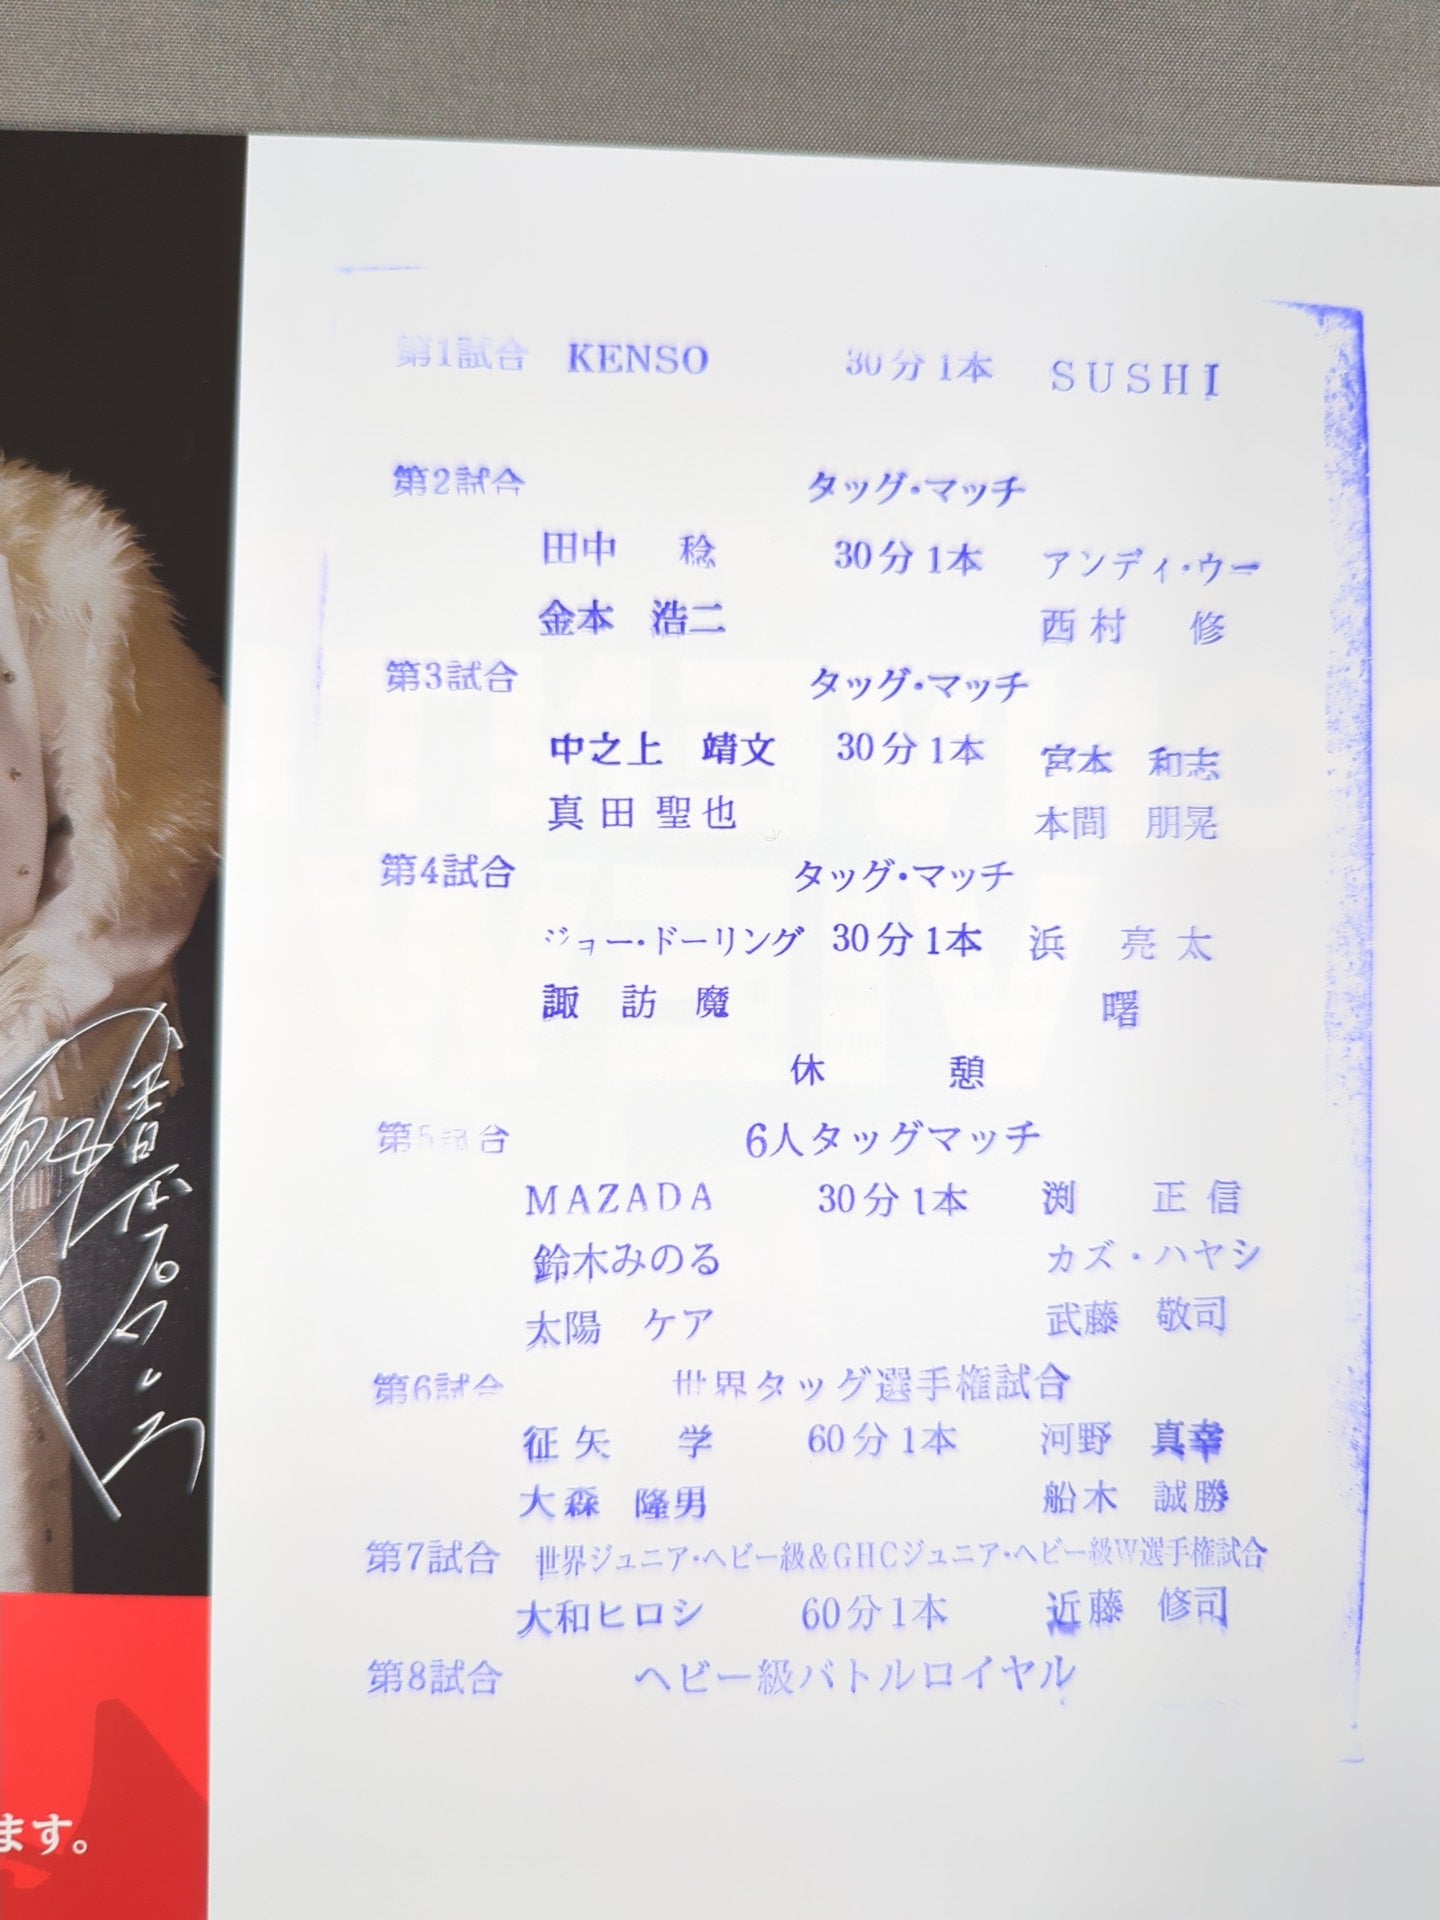 第1試合 KENSO 30分1本 SUSHI
第2試合 タッグ・マッチ
田中 稔 30分1本 アンディ・ウー
金本 浩二 西村 修
第3試合 タッグ・マッチ
中之上 靖文 30分1本 宮本 和志
真田聖也 本間 朋晃
第4試合 タッグ・マッチ
ジョー・ドーリング 30分1本 浜 亮太
諏訪魔 曙
休憩
第5試合 6人タッグマッチ
MAZADA 30分1本 渕 正信
鈴木みのる カズ・ハヤシ
太陽 ケア 武藤 敬司
第6試合 世界タッグ選手権試合
征矢 学 60分1本 河野 真幸
大森 隆男 船木 誠勝
第7試合 世界ジュニア・ヘビー級&GHCジュニア・ヘビー級W選手権試合
大和ヒロシ 60分1本 近藤 修司
第8試合 ヘビー級バトルロイヤル
ます。